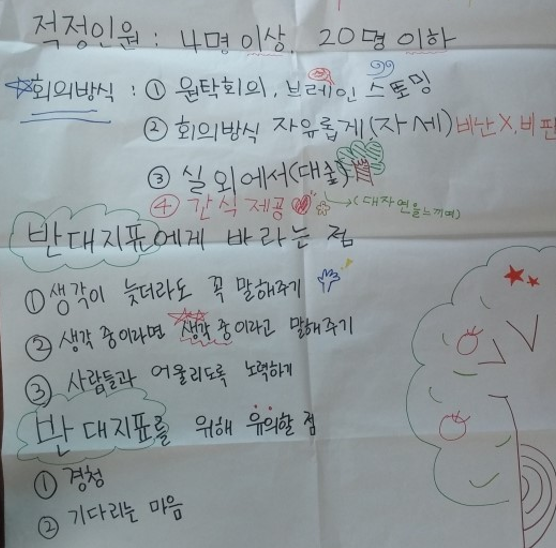 적정인원 : 4명 이상, 20명 이하
회의방식 : ① 원탁회의, 브레인스토밍
② 회의방식 자유롭게(자세) 비난X, 비판
③ 실외에서(대숲)
④ 간식 제공 →(대자연을느끼며)
반대지표에게 바라는 점
① 생각이 늦더라도 꼭 말해주기
② 생각 중이라면 생각 중이라고 말해주기
③ 사람들과 어울리도록 노력하기
반대지표를 위해 유의할 점
① 경청
② 기다리는 마음